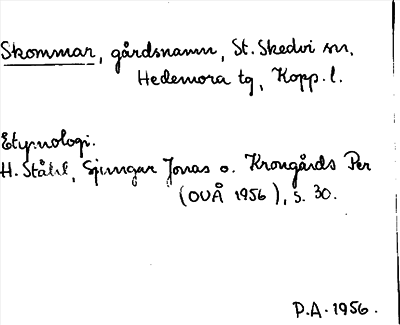 Skommar, gårdsnamn, St. Skedvi sn,
Hedemora tg, Kopp. l.
Etymologi.
H. Ståhl, Spungar Jonas o. Krongårds Per
(OUÅ 1956), s. 30.
P.A. 1956.